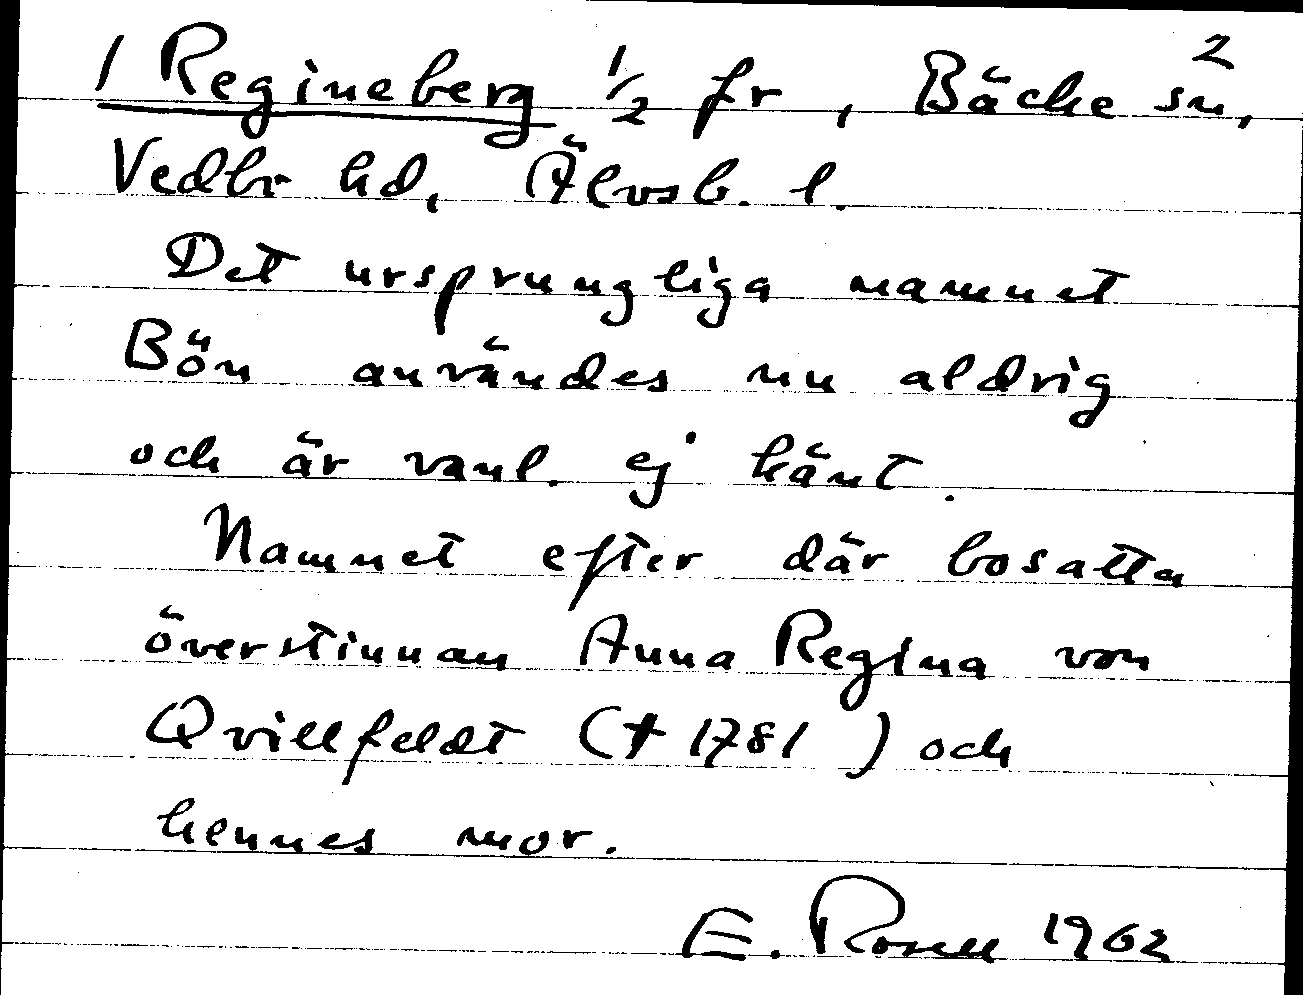 2
1 Regineberg ½ fr, Bäcke sn,
Vedbr hd, Älvsb. l.
Det ursprungliga namnet
Bön användes nu aldrig
och är vanl. ej känt.
Namnet efter där bosatta
överstinnan Anna Regina von
Qvillfeldt († 1781) och
hennes mor.
E. Rosell 1962